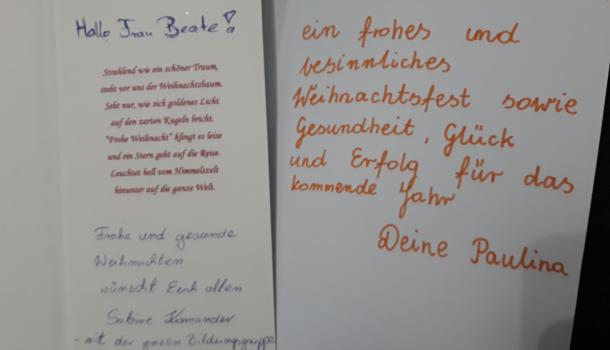 Hallo Frau Beate!
Strahlend wie ein schöner Traum,
steht vor uns der Weihnachtsbaum.
Seht nur, wie sich goldenes Licht
auf den zarten Kugeln bricht.
"Frohe Weihnacht" klingt es leise
und ein Stern geht auf die Reise.
Leuchtet hell vom Himmelszelt
hinunter auf die ganze Welt.
Frohe und gesunde
Weihnachten
wünscht Euch allen
Sabine
- mit der Bildungsgruppe
ein frohes und
besinnliches
Weihnachtsfest sowie
Gesundheit, Glück
und Erfolg für das
kommende Jahr
Deine Paulina